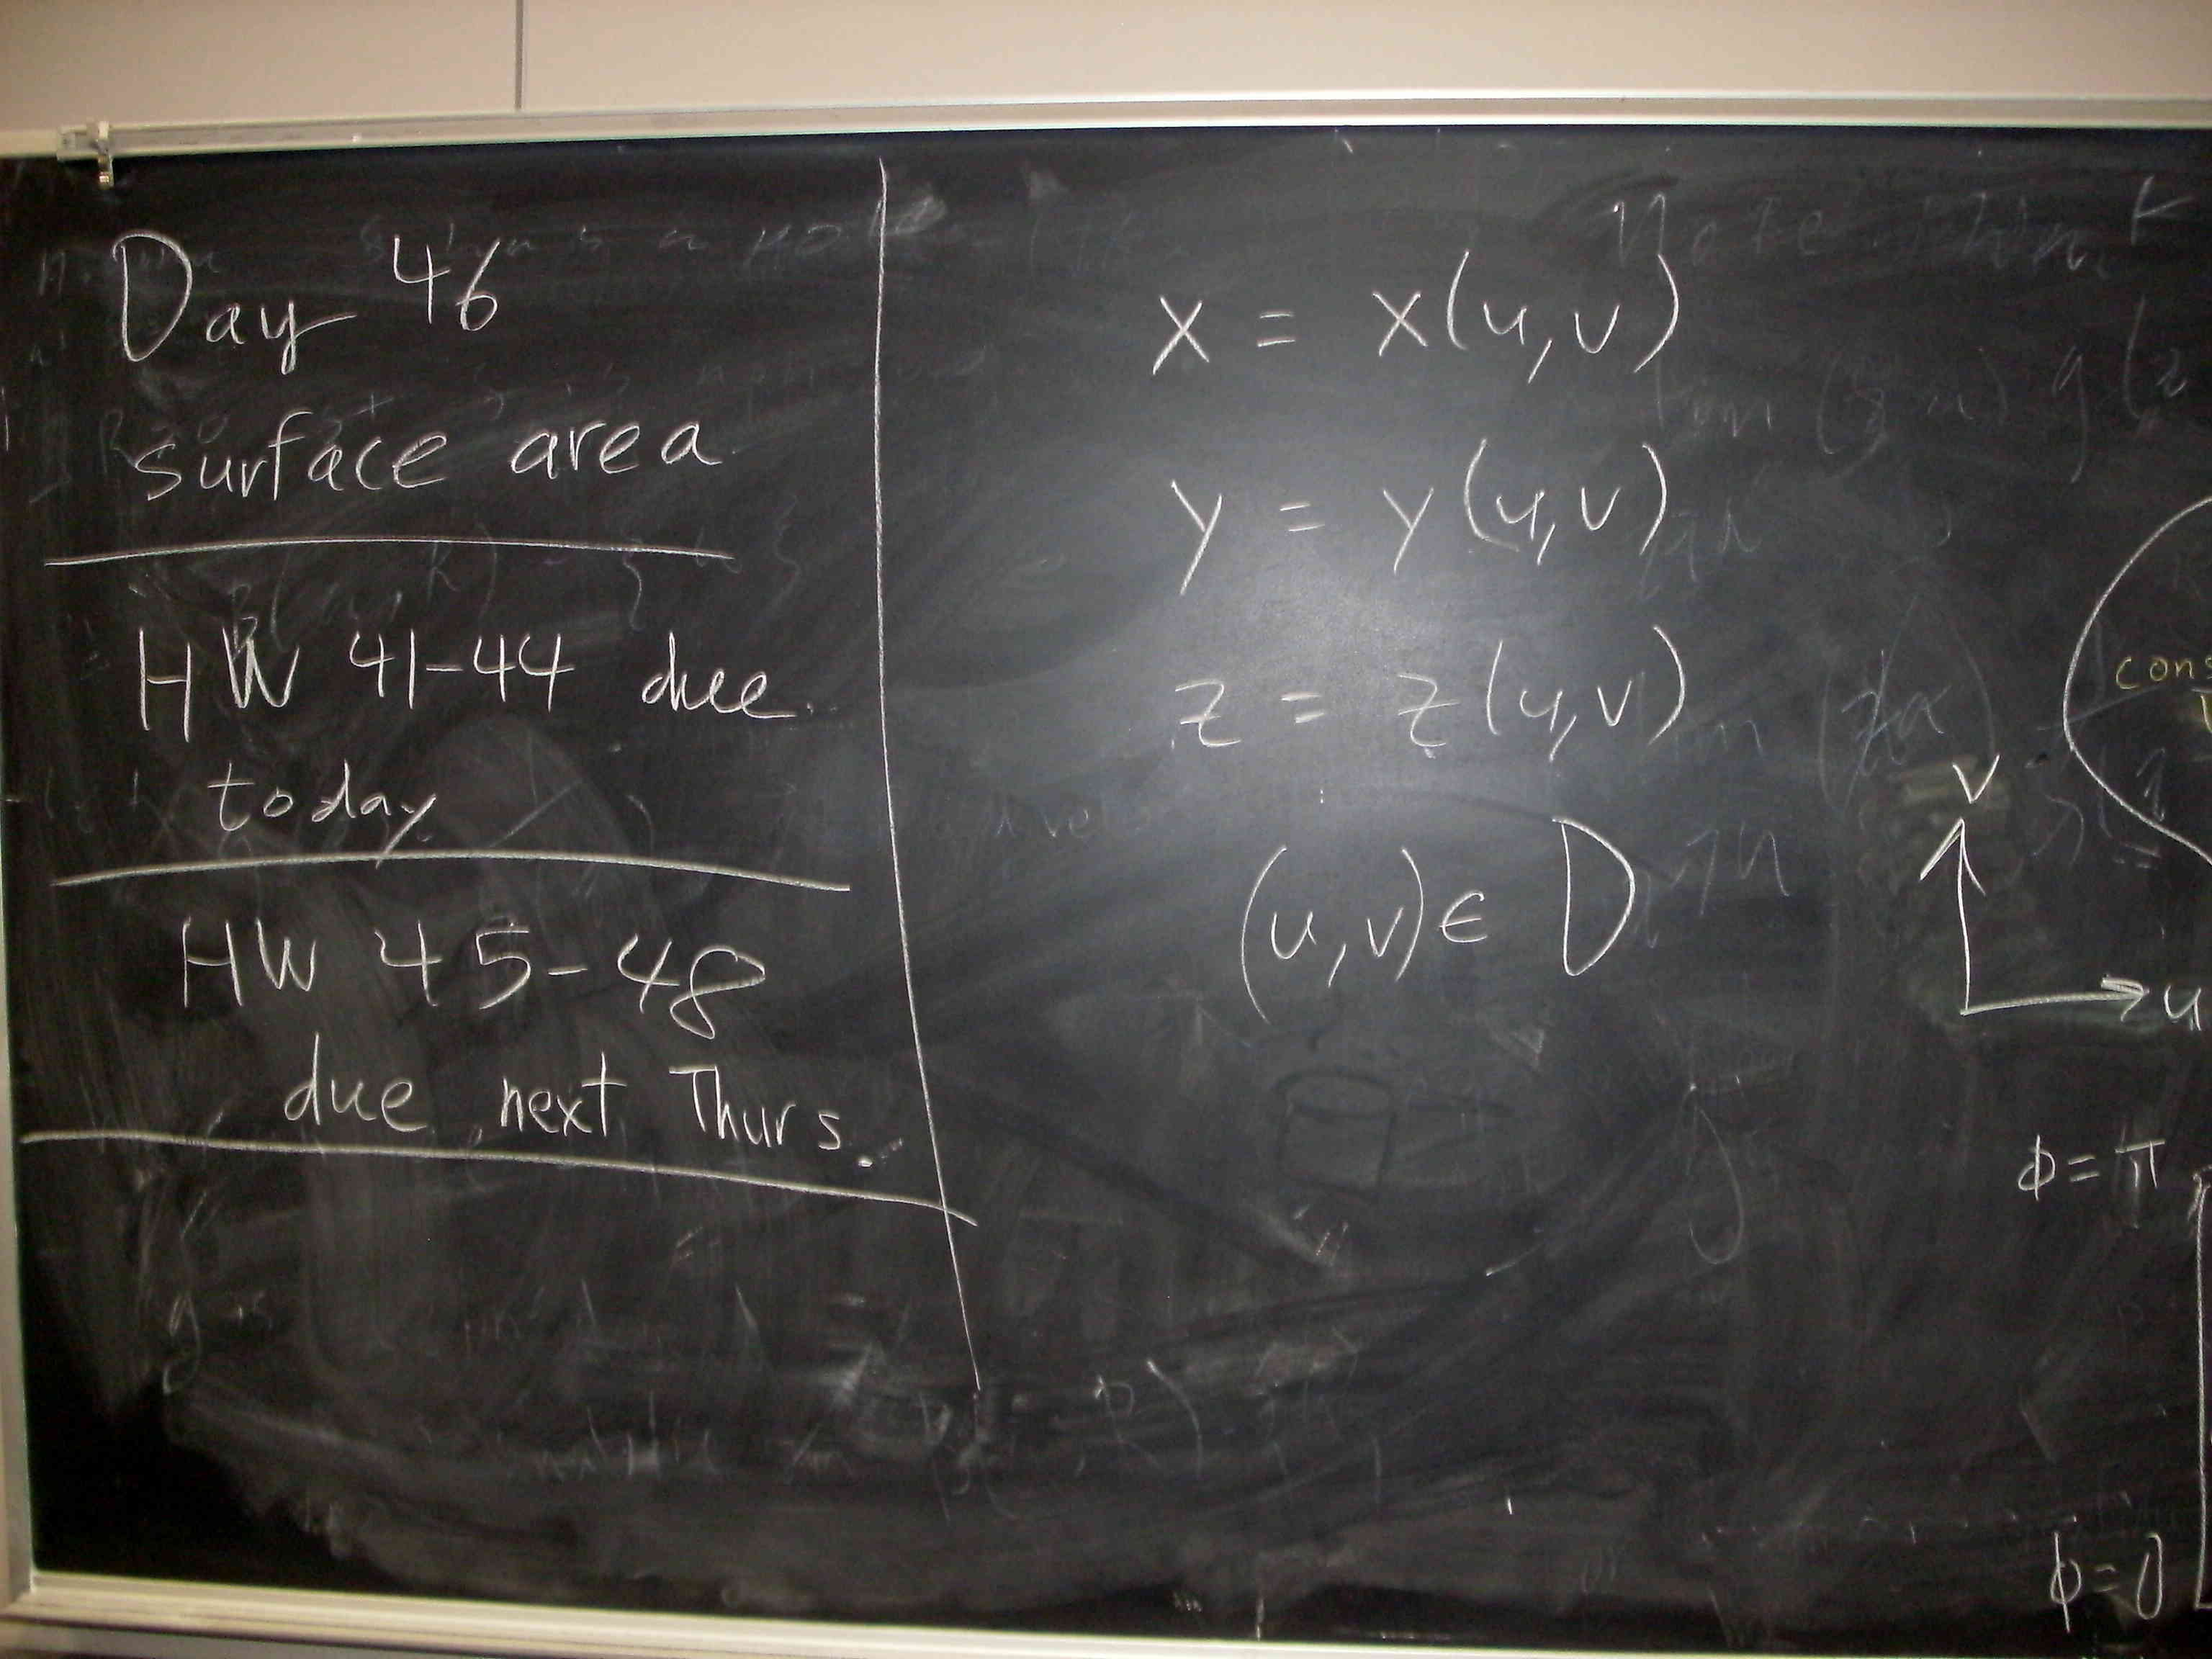 Day 46
surface area
HW 41-44 due
today
HW 45-48
due next Thurs.
x = x(u,v)
y = y(u,v)
z = z(u,v)
(u,v) ∈ D
v
u
ϕ = π
ϕ = 0